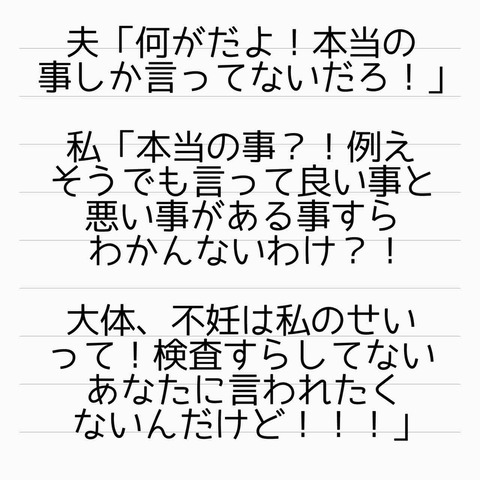 夫「何がだよ！本当の
事しか言ってないだろ！」
私「本当の事？！例え
そうでも言って良い事と
悪い事がある事すら
わかんないわけ？！
大体、不妊は私のせい
って！検査すらしてない
あなたに言われたく
ないんだけど！！！」